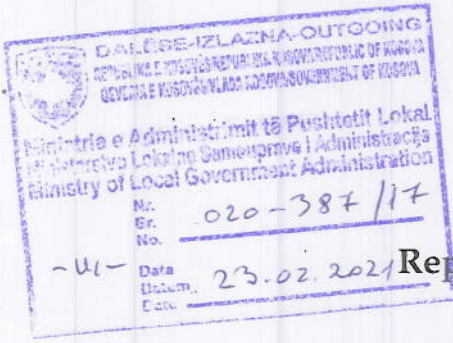 DALËSE-IZLAZNA-OUTGOING
REPUBLIKA E KOSOVËS/REPUBLIKA KOSOVA/REPUBLIC OF KOSOVA
QEVERIA E KOSOVËS/VLADA KOSOVA/GOVERNMENT OF KOSOVA
Ministria e Administrimit të Pushtetit Lokal
Ministarstvo Lokalne Samouprave i Administracije
Ministry of Local Government Administration
Nr.
Br.
No. 020-387/17
Data
Datum.
Date 23.02.2021
Rep